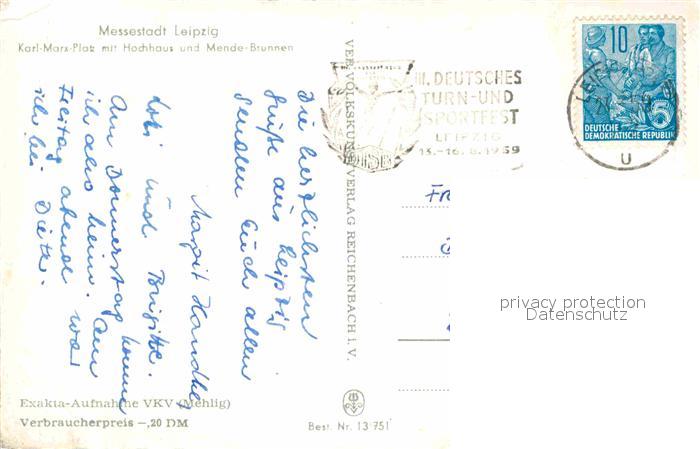 Messestadt Leipzig
Karl-Marx-Platz mit Hochhaus und Mende-Brunnen
Die herzlichsten
Grüße aus Leipzig
senden Euch allen
Margit
und Brigitte.
Am Donnerstag komme
ich also heim. Am
Freitag abend war
ich bei Dieter.
VEB VOLKSKUNSTVERLAG REICHENBACH i. V.
III. DEUTSCHES
TURN- UND
SPORTFEST
LEIPZIG
13.-16.8.1959
LEIPZIG
U
10
5
DEUTSCHE
DEMOKRATISCHE REPUBLIK
Fr
privacy protection
Datenschutz
Exakta-Aufnahme VKV (Mehlig)
Verbraucherpreis -,20 DM
Best. Nr. 13 751